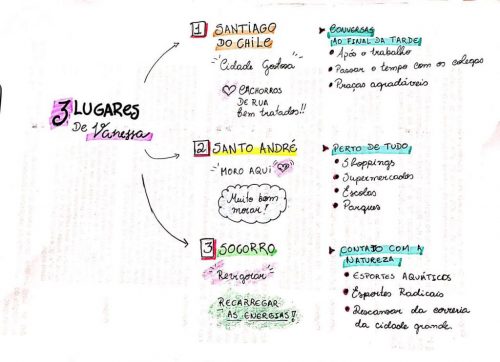 3 LUGARES
De Vanessa
1 SANTIAGO
DO CHILE
"Cidade Gostosa"
CACHORROS
DE RUA
bem tratados!!
CONVERSAS
AO FINAL DA TARDE
Após o trabalho
Passar o tempo com os colegas
Praças agradáveis
2 SANTO ANDRÉ
MORO AQUI
Muito bom
morar!
PERTO DE TUDO
Shoppings
Supermercados
Escolas
Parques
3 SOCORRO
Revigorar
RECARREGAR
AS ENERGIAS!!
CONTATO COM A
NATUREZA
ESPORTES AQUÁTICOS
Esportes Radicais
Descansar da correria
da cidade grande.